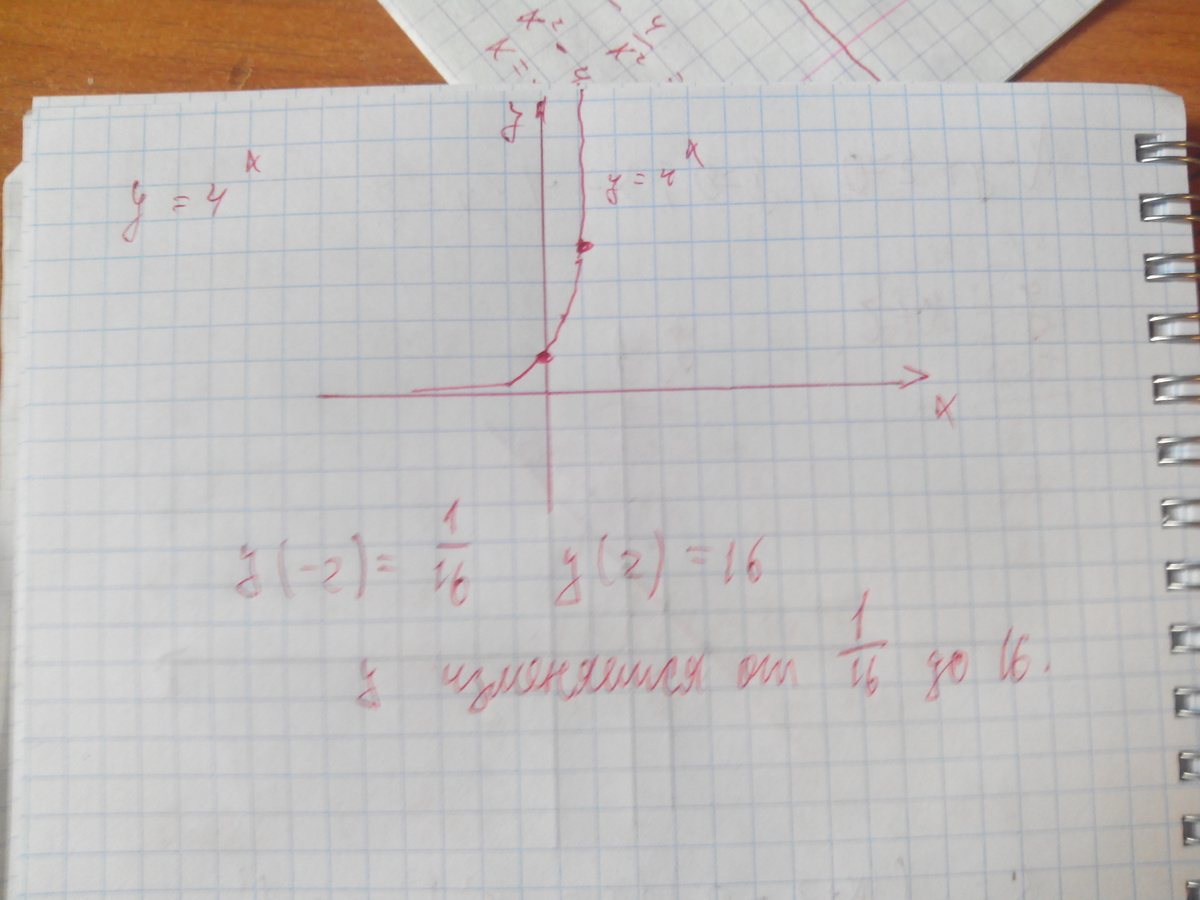 y
y = 4ˣ
y = 4ˣ
x
y(-2) = 1/16 y(2) = 16
y изменяется от 1/16 до 16.